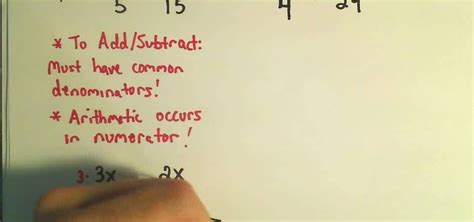 5 15 4 29
* To Add/Subtract:
Must have common
denominators!
* Arithmetic occurs
in numerator!
3· 3x 2x